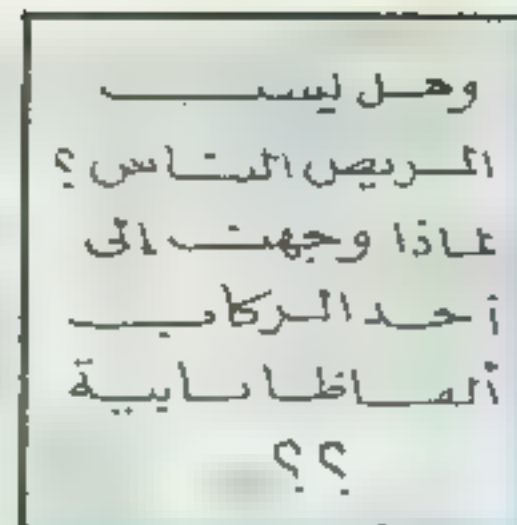 وهل ليست
المريض الناس ؟
لماذا وجهت إلى
أحد الركاب
ألفاظا نابية
؟؟